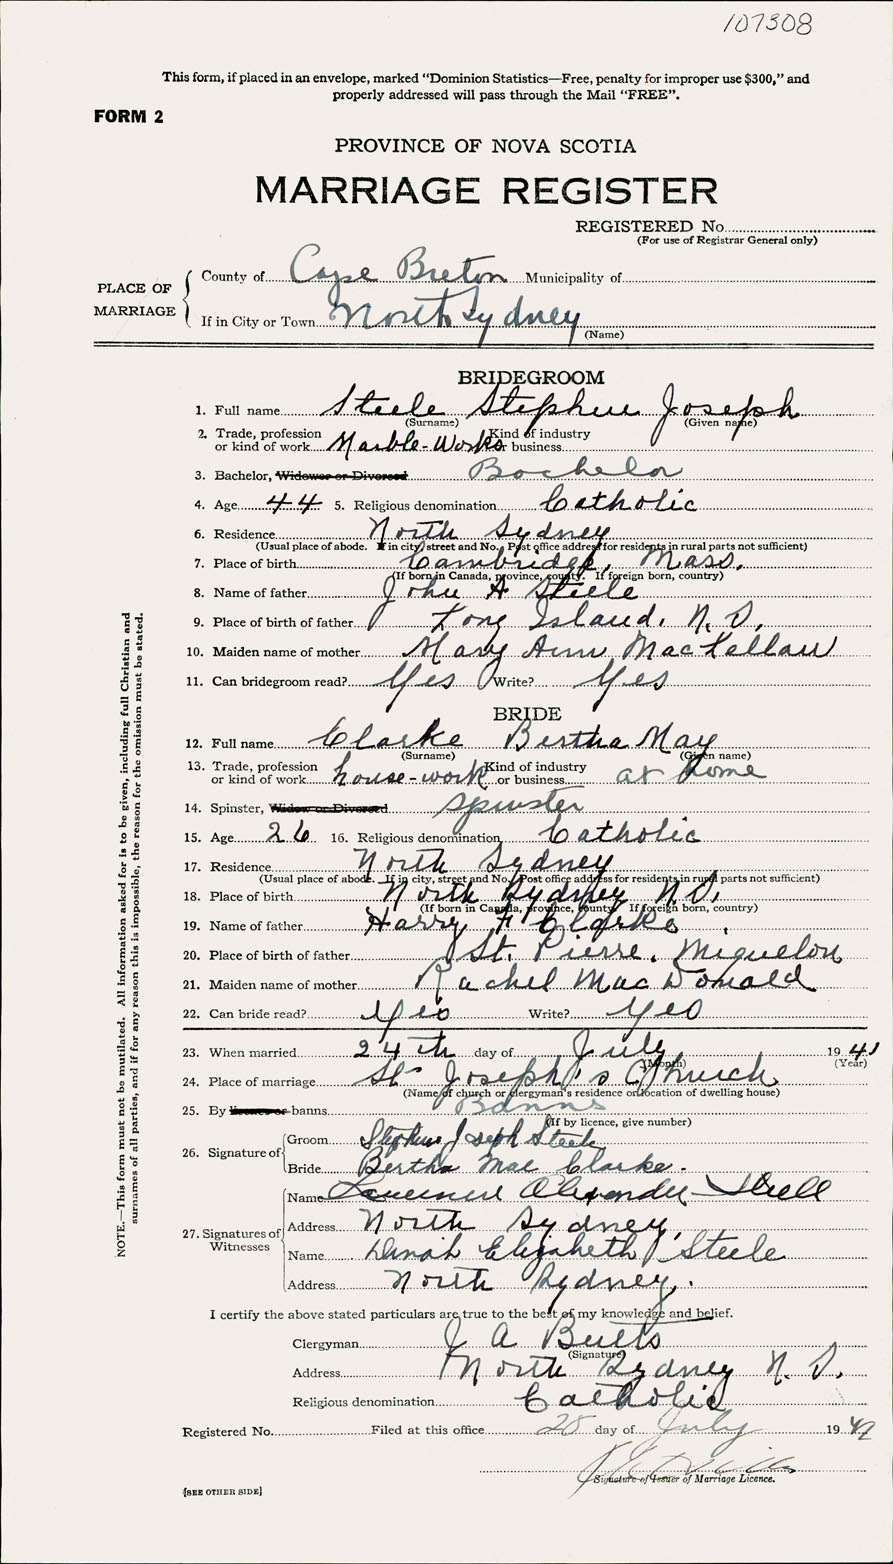 107308
This form, if placed in an envelope, marked “Dominion Statistics—Free, penalty for improper use $300,” and
properly addressed will pass through the Mail “FREE”.
FORM 2
PROVINCE OF NOVA SCOTIA
MARRIAGE REGISTER
REGISTERED No.
(For use of Registrar General only)
PLACE OF MARRIAGE
County of Cape Breton Municipality of
If in City or Town North Sydney
(Name)
BRIDEGROOM
1. Full name Steele Stephen Joseph
(Surname) (Given name)
2. Trade, profession or kind of work Marble-Works Kind of industry or business
3. Bachelor, Widower or Divorced Bachelor
4. Age 44 5. Religious denomination Catholic
6. Residence North Sydney
(Usual place of abode. If in city, street and No. Post office address for residents in rural parts not sufficient)
7. Place of birth Cambridge, Mass.
(If born in Canada, province, county. If foreign born, country)
8. Name of father John A Steele
9. Place of birth of father Long Island, N.S.
10. Maiden name of mother Mary Ann MacLellan
11. Can bridegroom read? Yes Write? Yes
BRIDE
12. Full name Clarke Bertha May
(Surname) (Given name)
13. Trade, profession or kind of work house-work Kind of industry or business at home
14. Spinster, Widow or Divorced spinster
15. Age 26 16. Religious denomination Catholic
17. Residence North Sydney
(Usual place of abode. If in city, street and No. Post office address for residents in rural parts not sufficient)
18. Place of birth North Sydney N.S.
(If born in Canada, province, county. If foreign born, country)
19. Name of father Harry F Clarke
20. Place of birth of father St. Pierre, Miquelon
21. Maiden name of mother Rachel MacDonald
22. Can bride read? Yes Write? Yes
23. When married 24th day of July 1941
(Month) (Year)
24. Place of marriage St. Joseph's Church
(Name of church or clergyman's residence or location of dwelling house)
25. By licence or banns Banns
(If by licence, give number)
26. Signature of
Groom Stephen Joseph Steele
Bride Bertha Mae Clarke.
27. Signatures of Witnesses
Name Alexander Steele
Address North Sydney
Name Dinah Elizabeth Steele
Address North Sydney.
I certify the above stated particulars are true to the best of my knowledge and belief.
Clergyman J A Butts
(Signature)
Address North Sydney N.S.
Religious denomination Catholic
Registered No. Filed at this office 28 day of July 19
Signature of Issuer of Marriage Licence.
[SEE OTHER SIDE]
NOTE.—This form must not be mutilated. All information asked for is to be given, including full Christian and
surnames of all parties, and if for any reason this is impossible, the reason for the omission must be stated.